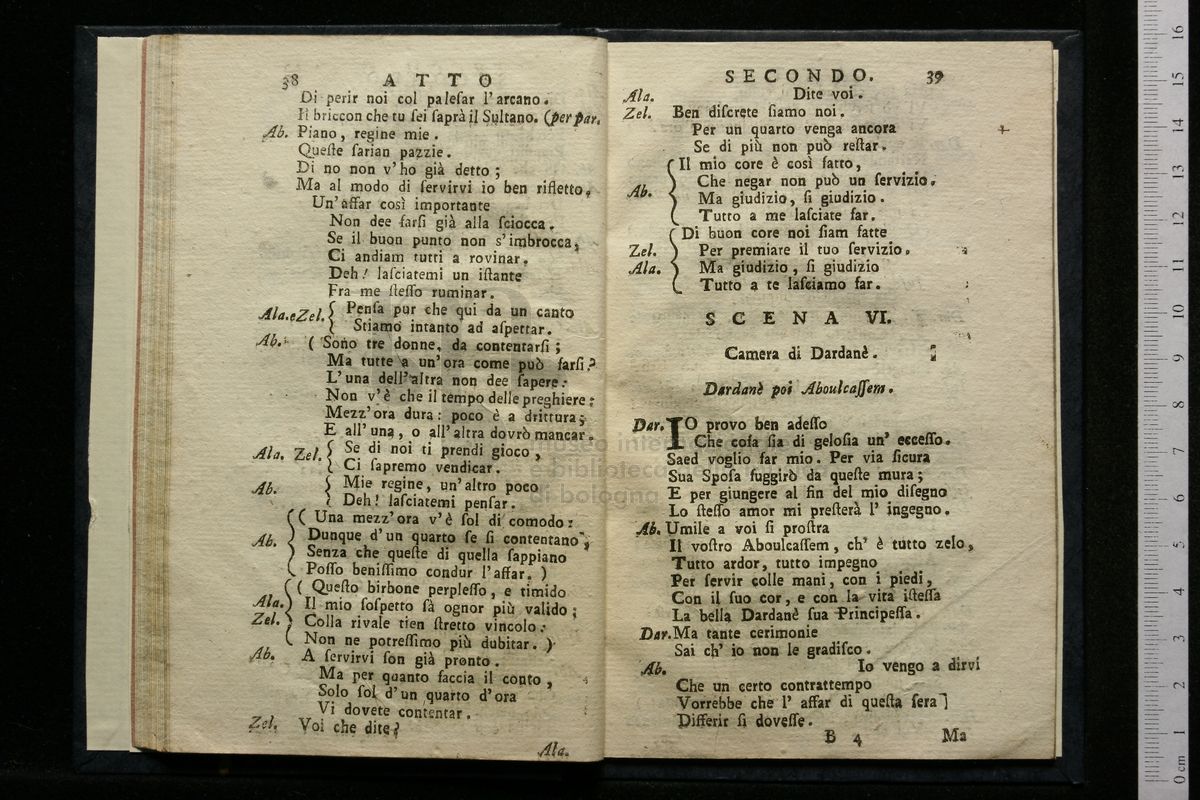 38 ATTO
Di perir noi col paleſar l'arcano.
Il briccon che tu ſei ſaprà il Sultano. (per par.
Ab. Piano, regine mie.
Queſte ſarian pazzie.
Di no non v'ho già detto;
Ma al modo di ſervirvi io ben rifletto.
Un'affar così importante
Non dee farſi già alla ſciocca.
Se il buon punto non s'imbrocca,
Ci andiam tutti a rovinar.
Deh! laſciatemi un iſtante
Fra me ſteſſo ruminar.
Ala. e Zel. { Penſa pur che qui da un canto
Stiamo intanto ad aſpettar.
Ab. ( Sono tre donne, da contentarſi;
Ma tutte a un'ora come può farſi?
L'una dell'altra non dee ſapere:
Non v'è che il tempo delle preghiere:
Mezz'ora dura: poco è a drittura;
E all'una, o all'altra dovrò mancar.
Ala. Zel. { Se di noi ti prendi gioco,
Ci ſapremo vendicar.
Ab. { Mie regine, un'altro poco
Deh! laſciatemi penſar.
Ab. { ( Una mezz'ora v'è ſol di comodo:
Dunque d'un quarto ſe ſi contentano,
Senza che queſte di quella ſappiano
Poſſo beniſſimo condur l'affar. )
Ala. Zel. { ( Queſto birbone perpleſſo, e timido
Il mio ſoſpetto fà ognor più valido;
Colla rivale tien ſtretto vincolo:
Non ne potreſſimo più dubitar. )
Ab. A ſervirvi ſon già pronto.
Ma per quanto faccia il conto,
Solo ſol d'un quarto d'ora
Vi dovete contentar.
Zel. Voi che dite?
Ala.
SECONDO. 39
Ala. Dite voi.
Zel. Ben diſcrete ſiamo noi.
Per un quarto venga ancora
Se di più non può reſtar.
Ab. { Il mio core è così fatto,
Che negar non può un ſervizio.
Ma giudizio, ſi giudizio.
Tutto a me laſciate far.
Zel. Ala. { Di buon core noi ſiam fatte
Per premiare il tuo ſervizio.
Ma giudizio, ſi giudizio
Tutto a te laſciamo far.
SCENA VI.
Camera di Dardanè.
Dardanè poi Aboulcaſſem.
Dar. IO provo ben adeſſo
Che coſa ſia di geloſia un' ecceſſo.
Saed voglio far mio. Per via ſicura
Sua Spoſa fuggirò da queſte mura;
E per giungere al fin del mio diſegno
Lo ſteſſo amor mi preſterà l' ingegno.
Ab. Umile a voi ſi proſtra
Il voſtro Aboulcaſſem, ch' è tutto zelo,
Tutto ardor, tutto impegno
Per ſervir colle mani, con i piedi,
Con il ſuo cor, e con la vita iſteſſa
La bella Dardanè ſua Principeſſa.
Dar. Ma tante cerimonie
Sai ch' io non le gradiſco.
Ab. Io vengo a dirvi
Che un certo contrattempo
Vorrebbe che l' affar di queſta ſera]
Differir ſi doveſſe.
B 4 Ma
museo inter
e biblioteca
di bologna
0 cm 1 2 3 4 5 6 7 8 9 10 11 12 13 14 15 16